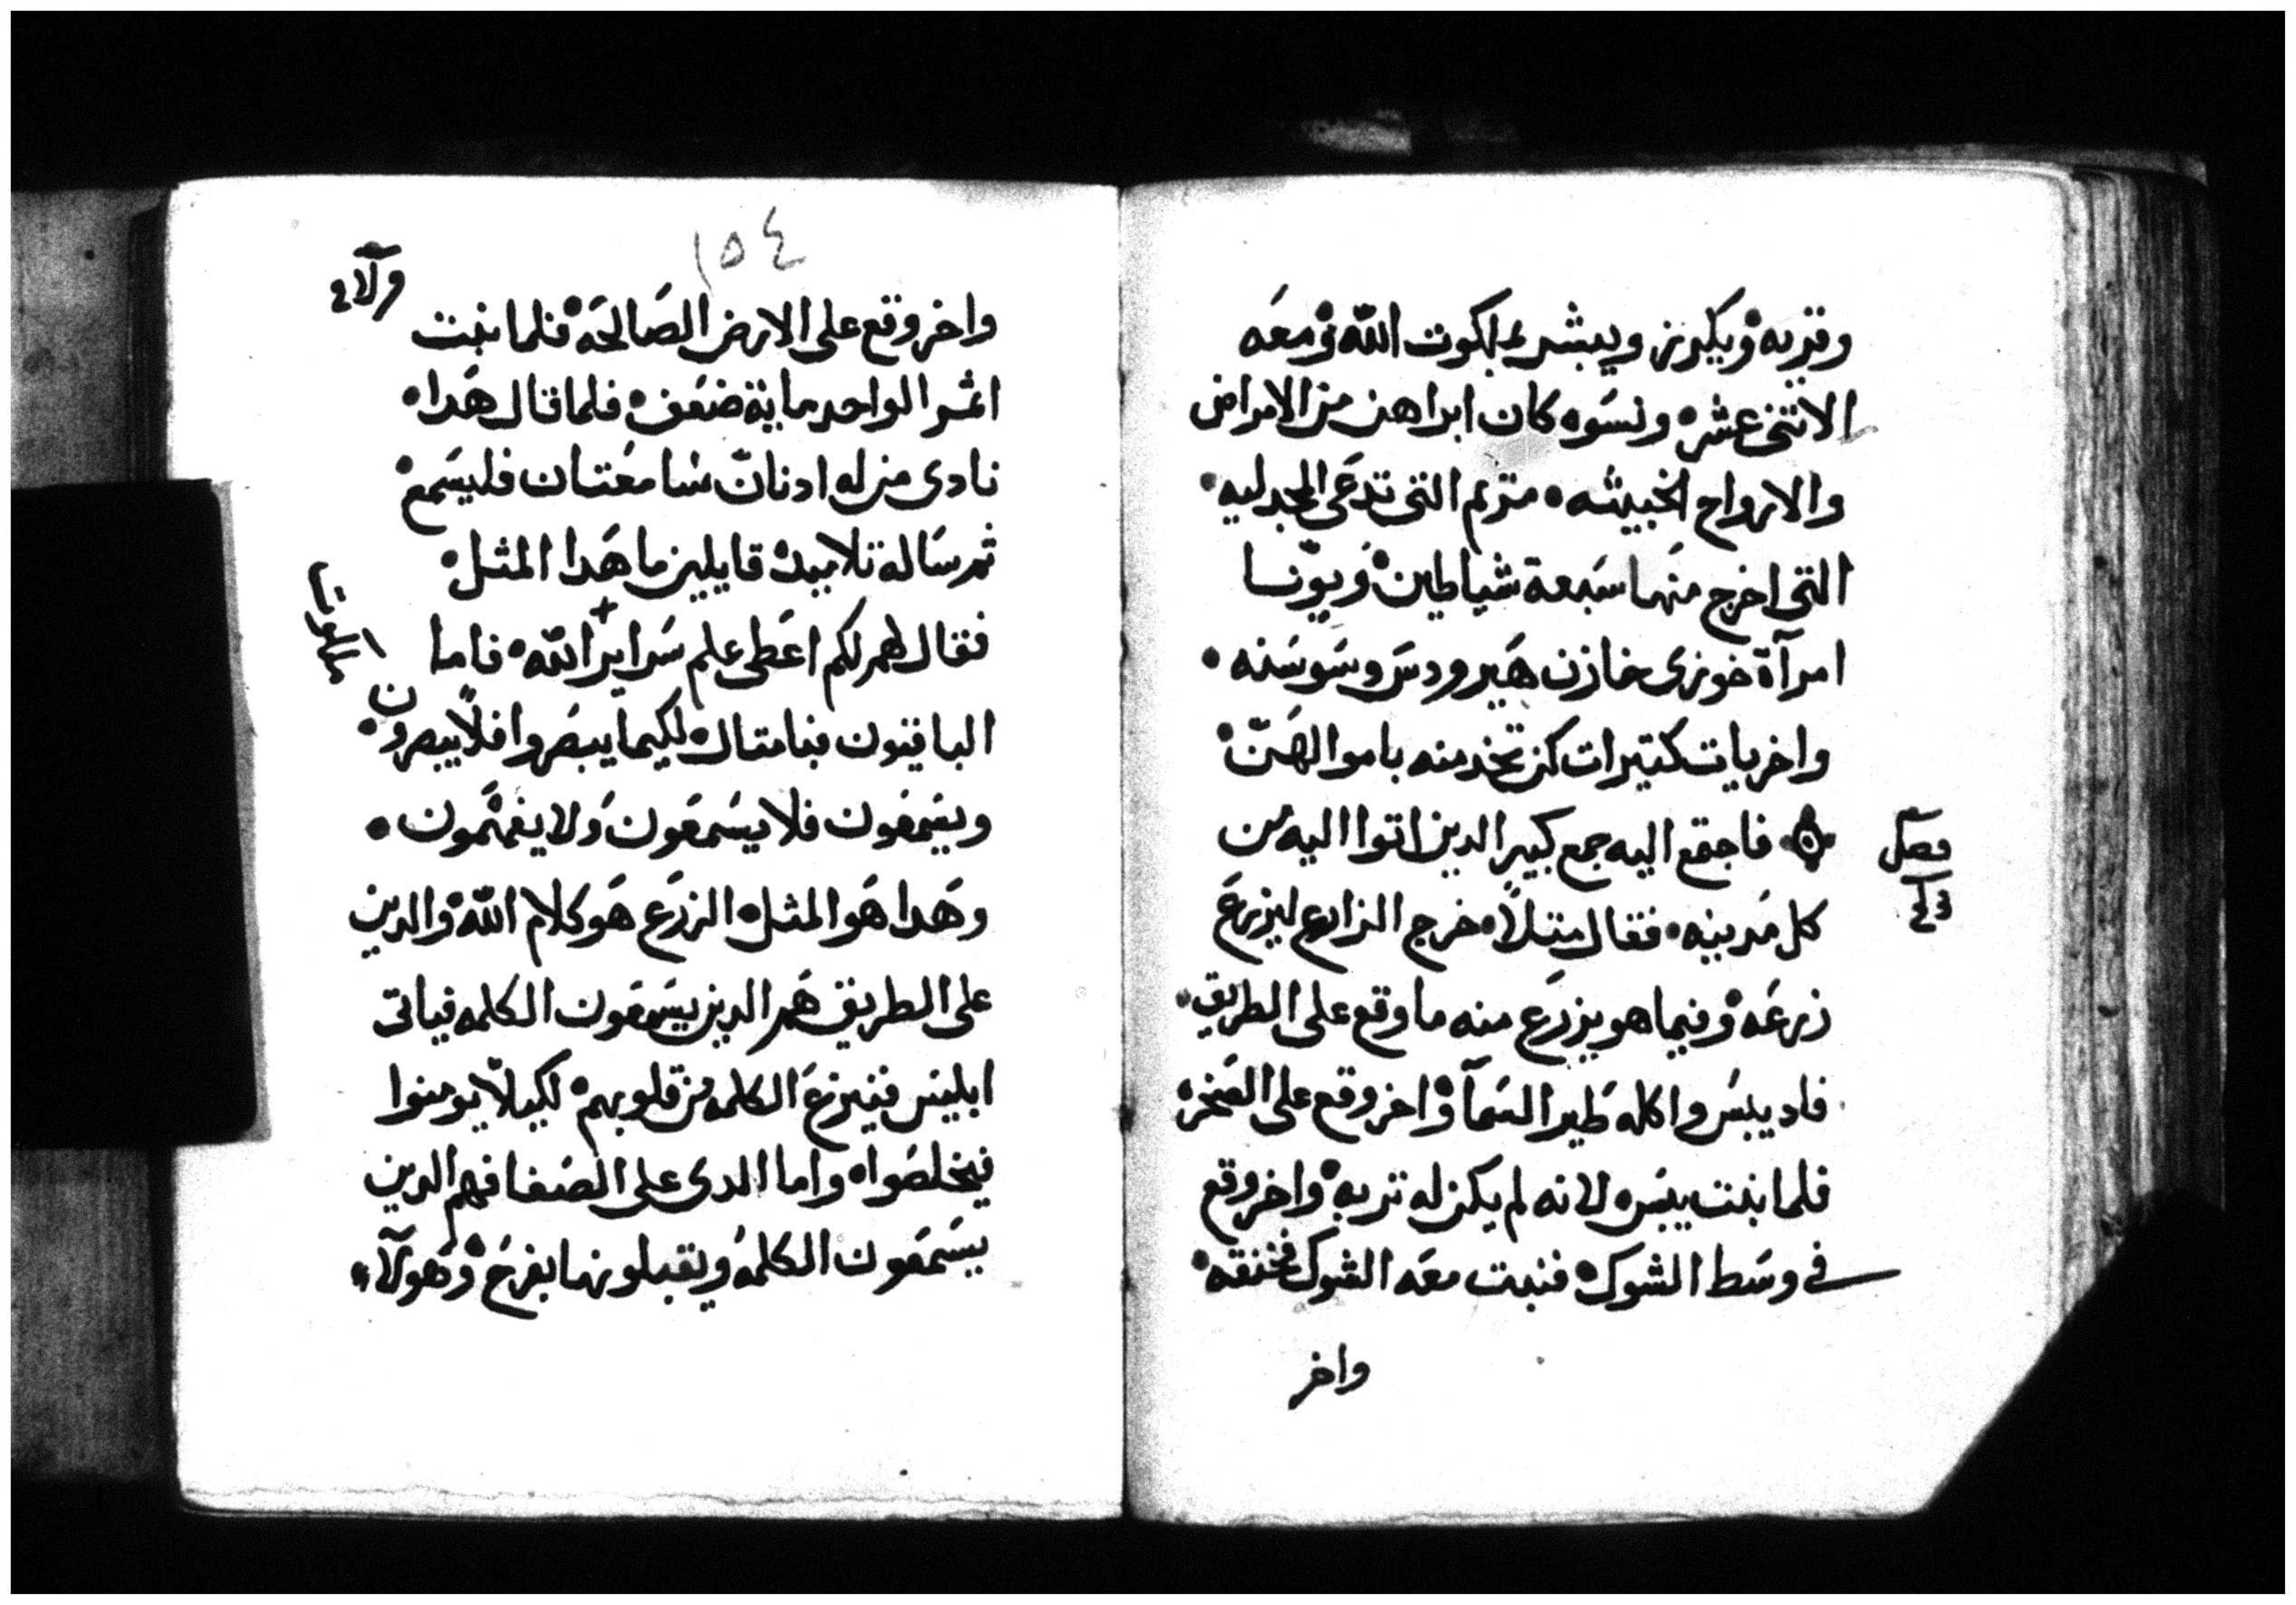 وقريه ويكرز ويبشر بملكوت الله ومعه
الاتنى عشر ونسوه كان ابراهن من الامراض
والارواح الخبيثه مريم التى تدعى المجدليه
التى اخرج منها سبعة شياطين ويونا
امرآة خوزى خازن هيرودس وسوسنه
واخريات كتيرات كن تخدمنه باموالهن
فصل
فاجتمع اليه جمع كبير الدين اتوا اليه من
كل مدينه فقال متلاً خرج الزارع ليزرع
زرعه وفيما هو يزرع منه ما وقع على الطريق
فاديبس واكله طير السمآ واخر وقع على الصخره
فلما نبت يبس لانه لم يكن له تربه واخر وقع
فى وسط الشوك فنبت معه الشوك فخنقه
واخر
١٥٤
واخر وقع على الارض الصالحه فلما نبت
اثمر الواحد ماية ضعف فلما قال هدا
نادى من له ادنان سامعتان فليسمع
ثم ساله تلاميده قايلين ما هدا المثل
فقال لهم لكم اعطى علم سراير الله فاما
ملكوت
الباقيون فبامتال لكيما يبصروا فلا يبصرون
ويسمعون فلا يسمعون ولا يفهمون
وهدا هو المثل الزرع هو كلام الله والدين
على الطريق هم الدين يسمعون الكلمه فياتى
ابليس فينزع الكلمه من قلوبهم لكيلا يومنوا
فيخلصوا واما الدى على الصفا فهم الدين
يسمعون الكلمه ويقبلونها بفرح وهولآء